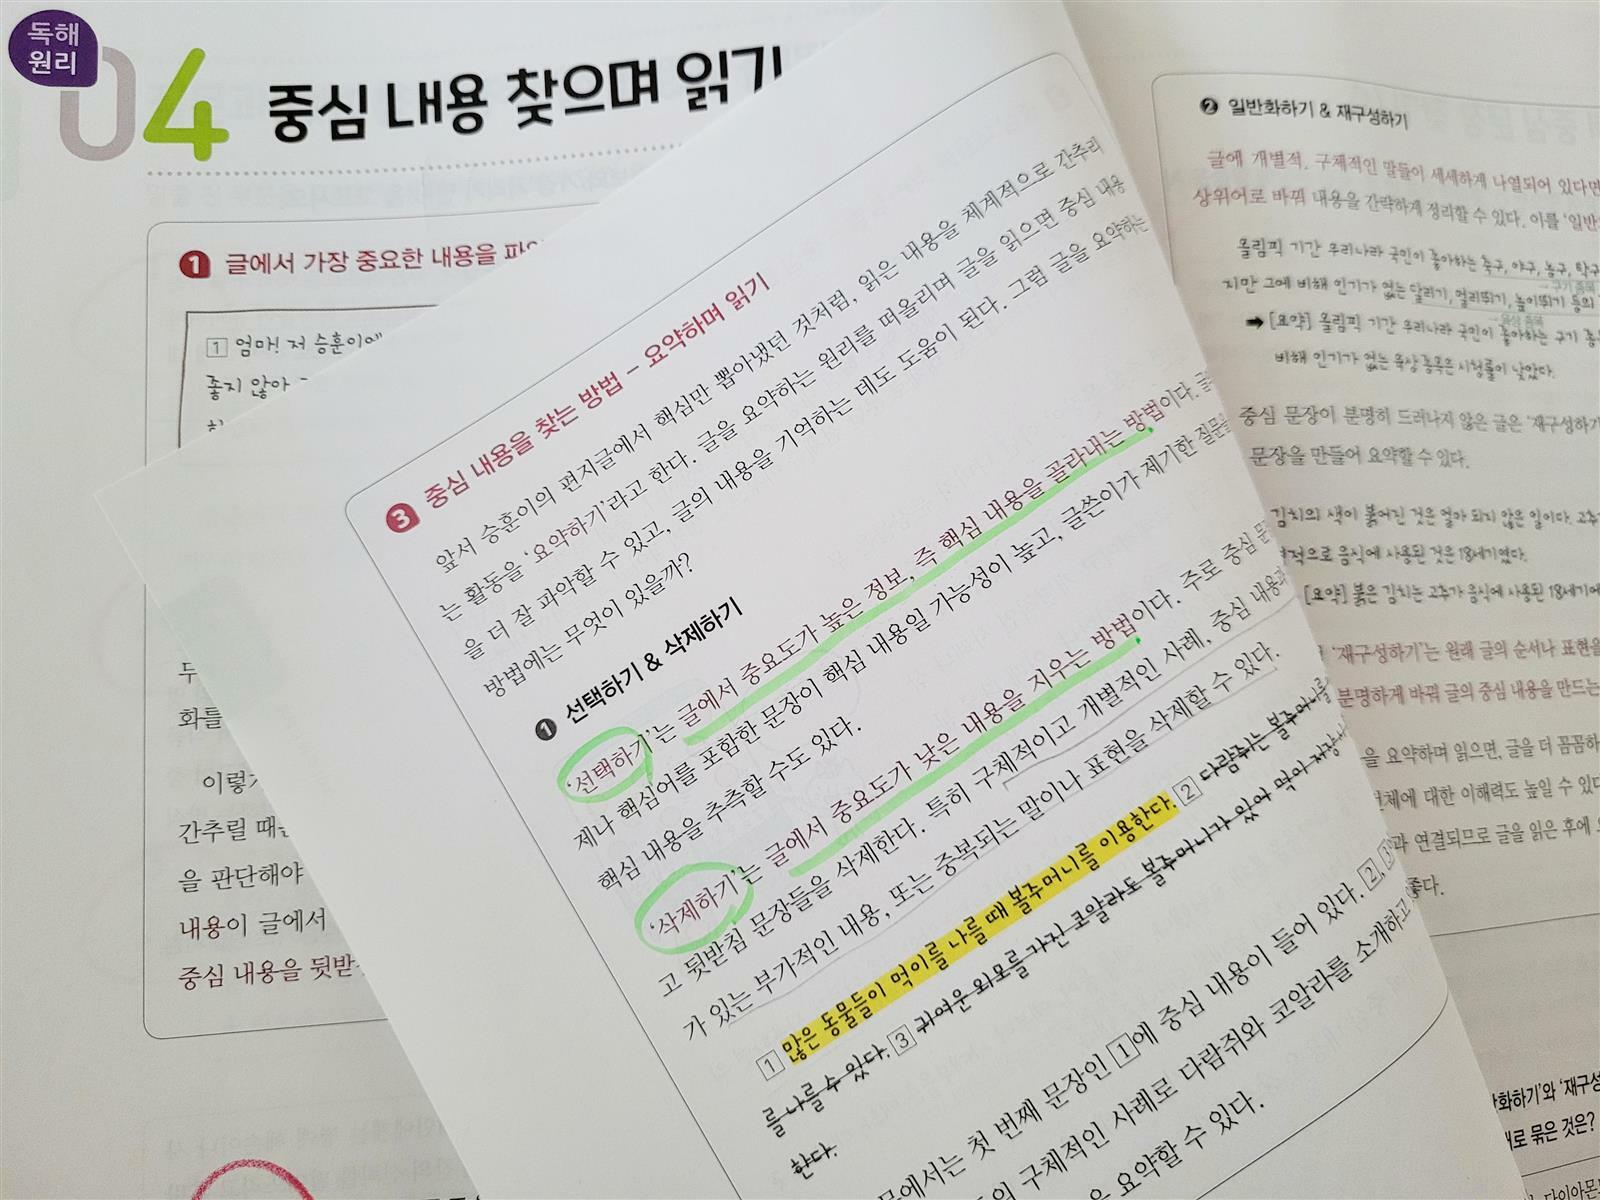 독해
원리
04 중심 내용 찾으며 읽기
1 글에서 가장 중요한 내용을
1 엄마! 저 승훈이에
좋지 않아
두
화를
이렇게
간추릴 때
을 판단해야
내용이 글에서
중심 내용을 뒷받
3 중심 내용을 찾는 방법 – 요약하며 읽기
앞서 승훈이의 편지글에서 핵심만 뽑아냈던 것처럼, 읽은 내용을 체계적으로 간추리
는 활동을 ‘요약하기’라고 한다. 글을 요약하는 원리를 떠올리며 글을 읽으면 중심 내용
을 더 잘 파악할 수 있고, 글의 내용을 기억하는 데도 도움이 된다. 그럼 글을 요약하는
방법에는 무엇이 있을까?
1 선택하기 & 삭제하기
‘선택하기’는 글에서 중요도가 높은 정보, 즉 핵심 내용을 골라내는 방법이다. 글
제나 핵심어를 포함한 문장이 핵심 내용일 가능성이 높고, 글쓴이가 제기한 질문을
핵심 내용을 추측할 수도 있다.
‘삭제하기’는 글에서 중요도가 낮은 내용을 지우는 방법이다. 주로 중심 문
고 뒷받침 문장들을 삭제한다. 특히 구체적이고 개별적인 사례, 중심 내용과
가 있는 부가적인 내용, 또는 중복되는 말이나 표현을 삭제할 수 있다.
1 많은 동물들이 먹이를 나를 때 볼주머니를 이용한다. 2 다람쥐는 볼주머니를
를 나를 수 있다. 3 귀여운 외모를 가진 코알라도 볼주머니가 있어 먹이 저장
한다.
문에서는 첫 번째 문장인 1에 중심 내용이 들어 있다. 2, 3
의 구체적인 사례로 다람쥐와 코알라를 소개하고
요약할 수 있다.
2 일반화하기 & 재구성하기
글에 개별적, 구체적인 말들이 세세하게 나열되어 있다면
상위어로 바꿔 내용을 간략하게 정리할 수 있다. 이를 ‘일반
올림픽 기간 우리나라 국민이 좋아하는 축구, 야구, 농구, 탁구
→구기 종목
지만 그에 비해 인기가 없는 달리기, 멀리뛰기, 높이뛰기 등의
→육상 종목
➡ [요약] 올림픽 기간 우리나라 국민이 좋아하는 구기 종
비해 인기가 없는 육상 종목은 시청률이 낮았다.
중심 문장이 분명히 드러나지 않은 글은 ‘재구성하기
문장을 만들어 요약할 수 있다.
김치의 색이 붉어진 것은 얼마 되지 않은 일이다. 고추
적으로 음식에 사용된 것은 18세기였다.
[요약] 붉은 김치는 고추가 음식에 사용된 18세기에
‘재구성하기’는 원래 글의 순서나 표현을
분명하게 바꿔 글의 중심 내용을 만드는
을 요약하며 읽으면, 글을 더 꼼꼼하
전체에 대한 이해력도 높일 수 있다
과 연결되므로 글을 읽은 후에
좋다.
화하기’와 ‘재구성
로 묶은 것은?
다이아몬